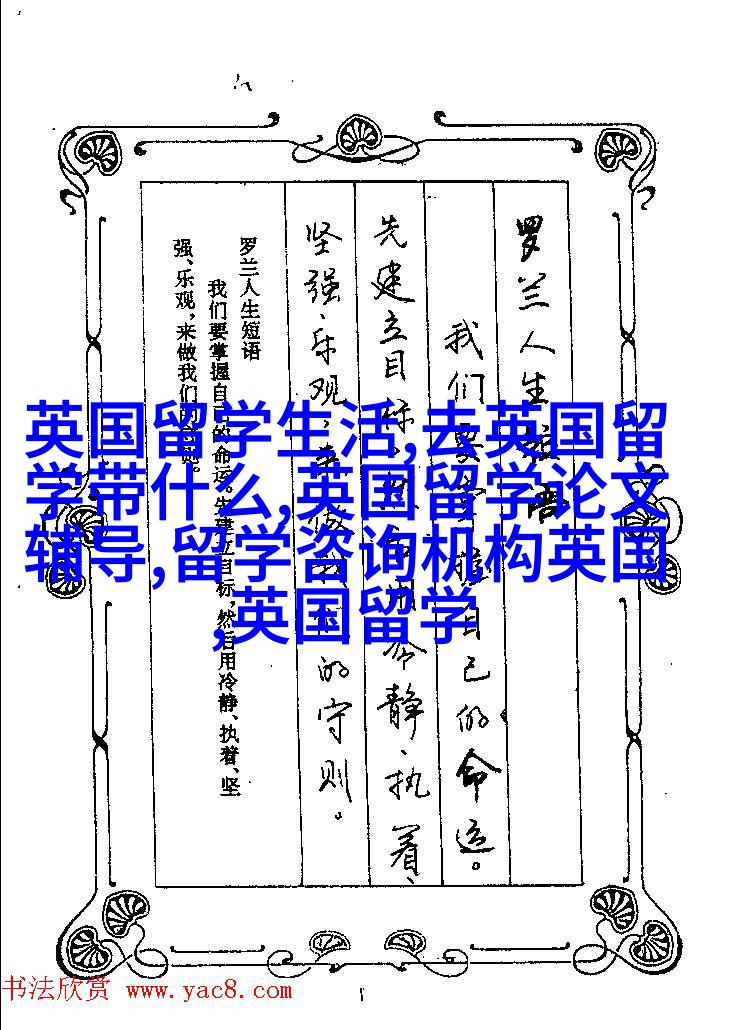 罗兰人生短语
我们要掌握自己的命运。
先建立目标,然后用冷静、执着、
坚强、乐观,来做我们的守则。
罗兰人生短语
我们要掌握自己的命运。先建立目标,然后用冷静、执着、坚
强、乐观,来做我们的守则。
英国留学生活,去英国留
学带什么,英国留学论文
辅导,留学咨询机构英国
,英国留学
书法欣赏 www.yac8.com
1